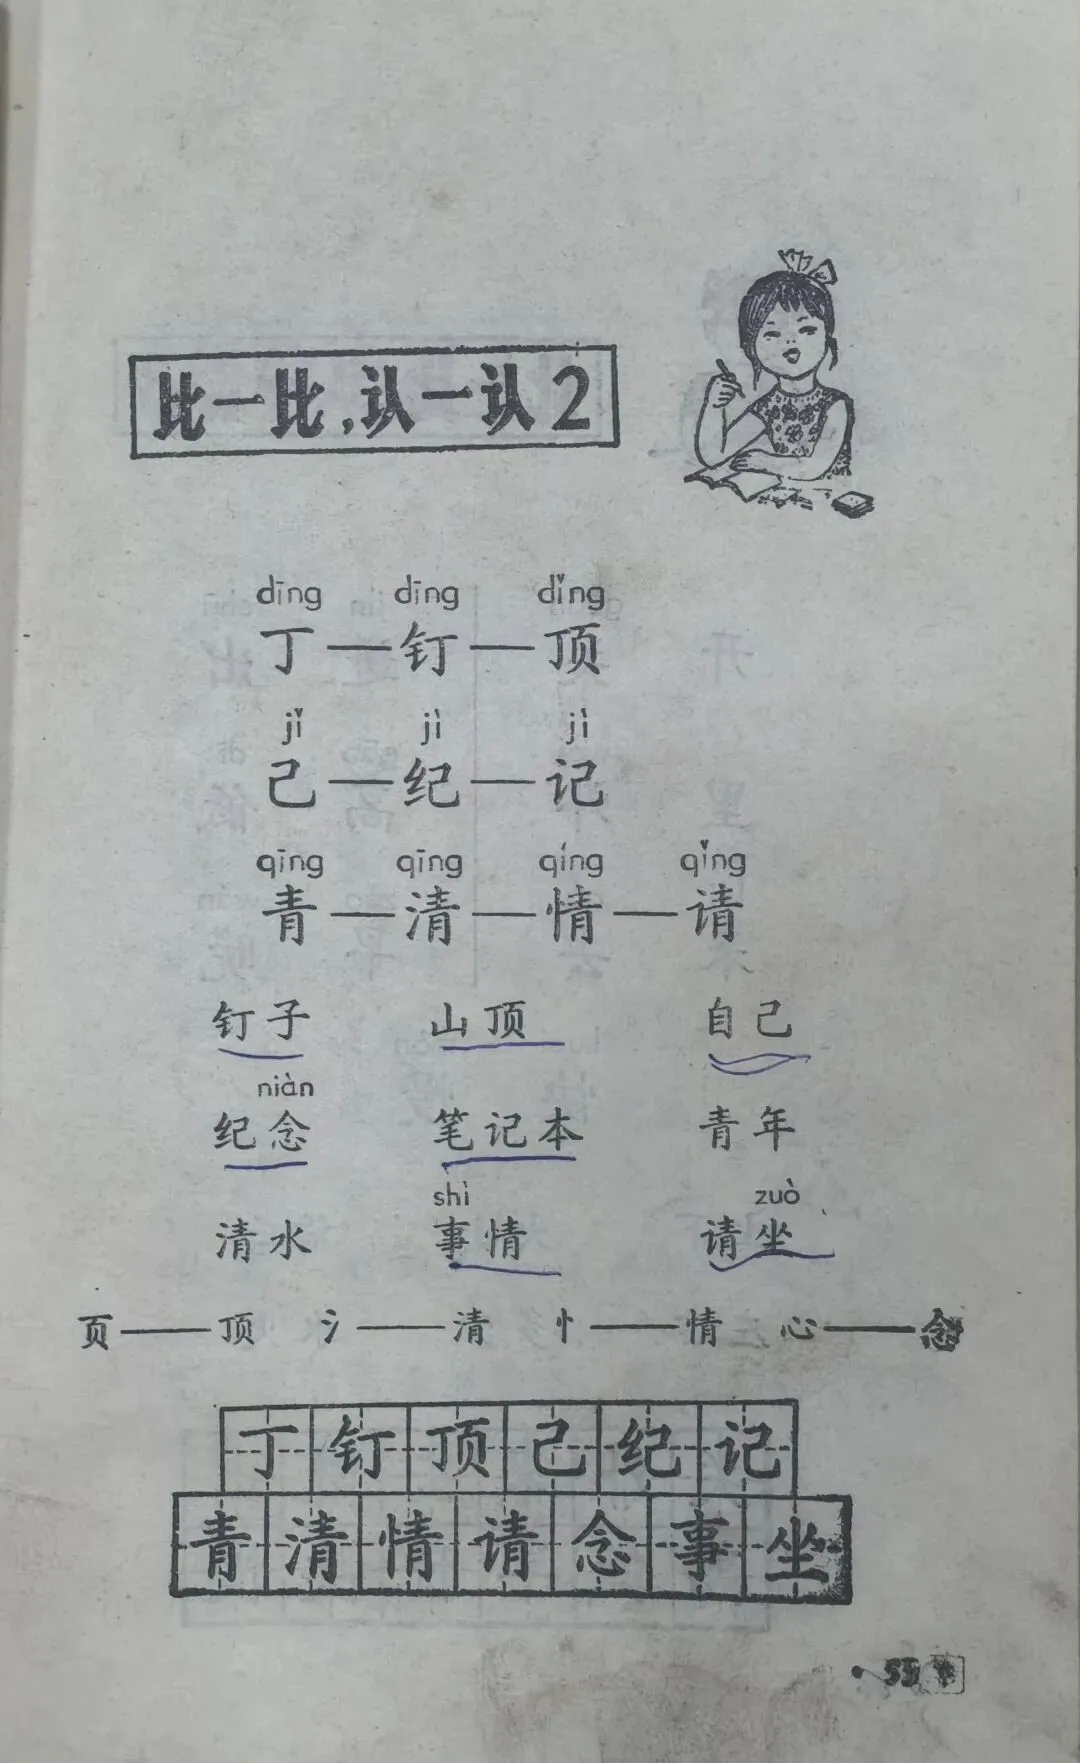 比一比,认一认2
dīng dīng dǐng
丁—钉—顶
jǐ jì jì
己—纪—记
qīng qīng qíng qǐng
青—清—情—请
钉子 山顶 自己
niàn
纪念 笔记本 青年
shì zuò
清水 事情 请坐
页——顶 氵——清 忄——情 心——念
丁钉顶己纪记
青清情请念事坐